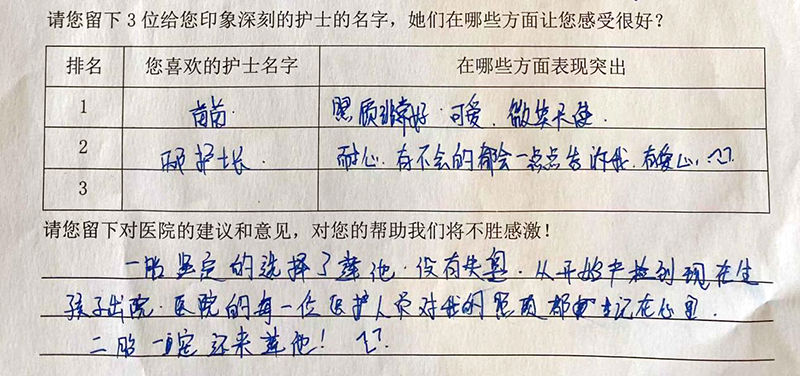 请您留下3位给您印象深刻的护士的名字，她们在哪些方面让您感受很好？
排名 您喜欢的护士名字 在哪些方面表现突出
1 苗苗. 照顾非常好.可爱.微笑天使.
2 护士长. 耐心.有不会的都会一点点告诉我.有爱心.
3
请您留下对医院的建议和意见，对您的帮助我们将不胜感激！
一胎坚定的选择了莲池.没有失望.从开始产检到现在生
孩子出院.医院的每一位医护人员对我的照顾都牢记在心里.
二胎一定还来莲池！